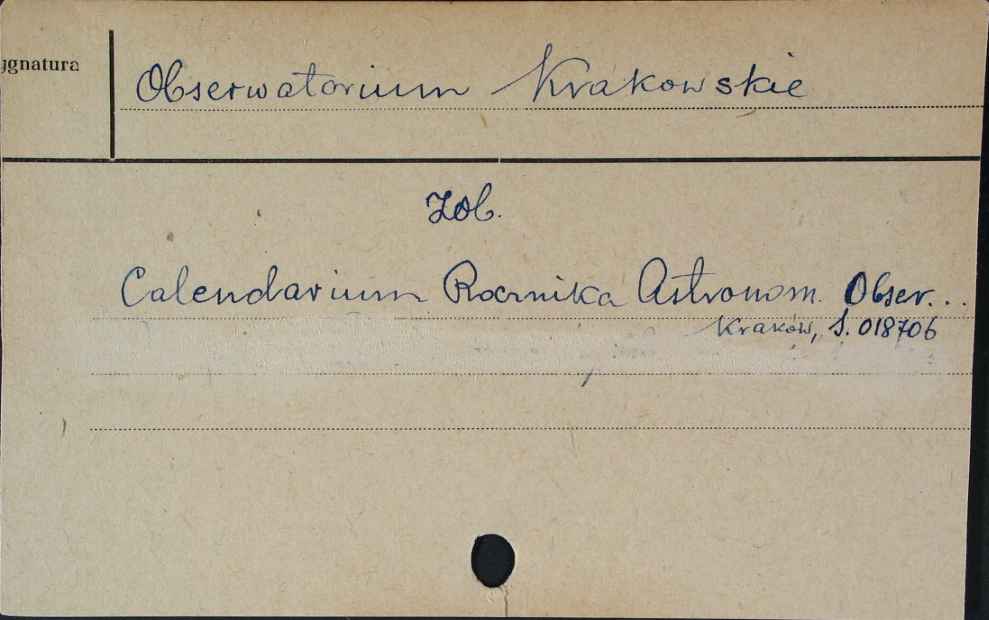 ygnatura
Obserwatorium Krakowskie
Zob.
Calendarium Rocznika Astronom. Obser...
Kraków, S. 018706